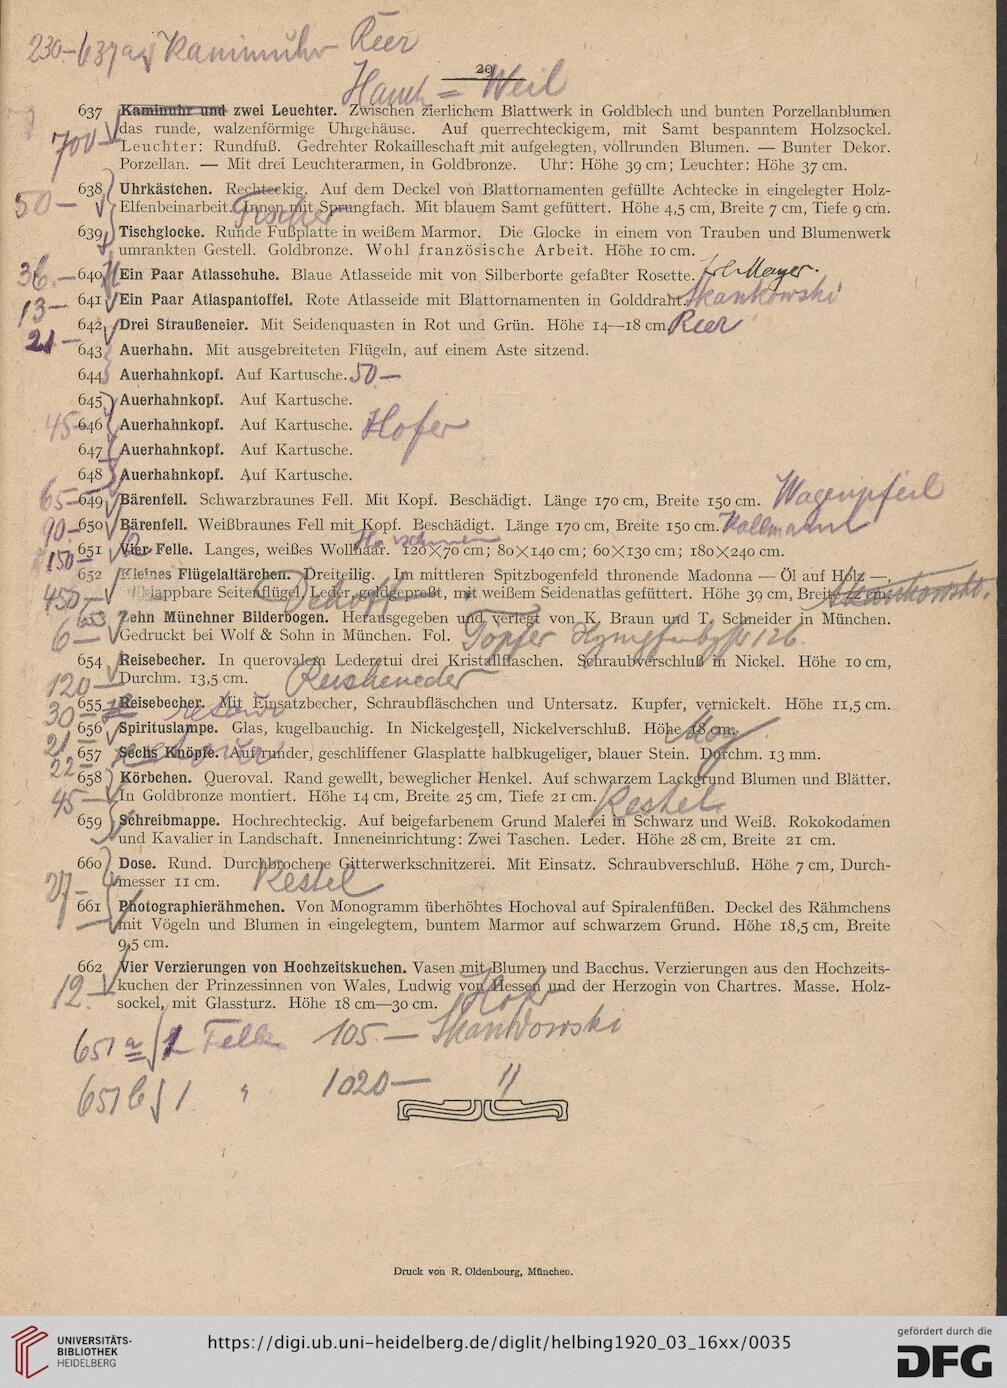 230.- 637a Kaminuhr Reer
29
Hamh = Weil
637 Kaminuhr und zwei Leuchter. Zwischen zierlichem Blattwerk in Goldblech und bunten Porzellanblumen
das runde, walzenförmige Uhrgehäuse. Auf querrechteckigem, mit Samt bespanntem Holzsockel.
700- Leuchter: Rundfuß. Gedrehter Rokailleschaft mit aufgelegten, vollrunden Blumen. — Bunter Dekor.
Porzellan. — Mit drei Leuchterarmen, in Goldbronze. Uhr: Höhe 39 cm; Leuchter: Höhe 37 cm.
638 Uhrkästchen. Rechteckig. Auf dem Deckel von Blattornamenten gefüllte Achtecke in eingelegter Holz-
50- Elfenbeinarbeit. Innen mit Sprungfach. Mit blauem Samt gefüttert. Höhe 4,5 cm, Breite 7 cm, Tiefe 9 cm.
Fischer
639 Tischglocke. Runde Fußplatte in weißem Marmor. Die Glocke in einem von Trauben und Blumenwerk
umrankten Gestell. Goldbronze. Wohl französische Arbeit. Höhe 10 cm.
36.- 640 Ein Paar Atlasschuhe. Blaue Atlasseide mit von Silberborte gefaßter Rosette. Mayer.
13- 641 Ein Paar Atlaspantoffel. Rote Atlasseide mit Blattornamenten in Golddraht. Skankowski
21- 642 Drei Straußeneier. Mit Seidenquasten in Rot und Grün. Höhe 14—18 cm. Reer
643 Auerhahn. Mit ausgebreiteten Flügeln, auf einem Aste sitzend.
644 Auerhahnkopf. Auf Kartusche. 50.-
645 Auerhahnkopf. Auf Kartusche.
45- 646 Auerhahnkopf. Auf Kartusche. Hofer
647 Auerhahnkopf. Auf Kartusche.
648 Auerhahnkopf. Auf Kartusche.
65- 649 Bärenfell. Schwarzbraunes Fell. Mit Kopf. Beschädigt. Länge 170 cm, Breite 150 cm. Wagenpfeil
90- 650 Bärenfell. Weißbraunes Fell mit Kopf. Beschädigt. Länge 170 cm, Breite 150 cm. Kallmann
150- 651 Vier Felle. Langes, weißes Wollhaar. 120×70 cm; 80×140 cm; 60×130 cm; 180×240 cm.
652 Kleines Flügelaltärchen. Dreiteilig. Im mittleren Spitzbogenfeld thronende Madonna — Öl auf Holz —,
450- klappbare Seitenflügel, Leder, goldgepreßt, mit weißem Seidenatlas gefüttert. Höhe 39 cm, Breite 42 cm. Skankowski.
653 Zehn Münchner Bilderbogen. Herausgegeben und verlegt von K. Braun und T. Schneider in München.
6- Gedruckt bei Wolf & Sohn in München. Fol. Töpfer
654 Reisebecher. In querovalem Lederetui drei Kristallflaschen. Schraubverschluß in Nickel. Höhe 10 cm,
120- Durchm. 13,5 cm. Reicheneder
30- 655 Reisebecher. Mit Einsatzbecher, Schraubfläschchen und Untersatz. Kupfer, vernickelt. Höhe 11,5 cm.
retour
21- 656 Spirituslampe. Glas, kugelbauchig. In Nickelgestell, Nickelverschluß. Höhe 18 cm. May
22- 657 Sechs Knöpfe. Auf runder, geschliffener Glasplatte halbkugeliger, blauer Stein. Durchm. 13 mm.
retour
658 Körbchen. Queroval. Rand gewellt, beweglicher Henkel. Auf schwarzem Lackgrund Blumen und Blätter.
45- In Goldbronze montiert. Höhe 14 cm, Breite 25 cm, Tiefe 21 cm. Restel
659 Schreibmappe. Hochrechteckig. Auf beigefarbenem Grund Malerei in Schwarz und Weiß. Rokokodamen
und Kavalier in Landschaft. Inneneinrichtung: Zwei Taschen. Leder. Höhe 28 cm, Breite 21 cm.
660 Dose. Rund. Durchbrochene Gitterwerkschnitzerei. Mit Einsatz. Schraubverschluß. Höhe 7 cm, Durch-
27- messer 11 cm. Restel
661 Photographierähmchen. Von Monogramm überhöhtes Hochoval auf Spiralenfüßen. Deckel des Rähmchens
mit Vögeln und Blumen in eingelegtem, buntem Marmor auf schwarzem Grund. Höhe 18,5 cm, Breite
9,5 cm.
662 Vier Verzierungen von Hochzeitskuchen. Vasen mit Blumen und Bacchus. Verzierungen aus den Hochzeits-
12.- kuchen der Prinzessinnen von Wales, Ludwig von Hessen und der Herzogin von Chartres. Masse. Holz-
sockel, mit Glassturz. Höhe 18 cm—30 cm.
651 a 1 Felle 105.- Skankowski
651 b 1 " 1020- "
Druck von R. Oldenbourg, München.
UNIVERSITÄTS-
BIBLIOTHEK
HEIDELBERG
https://digi.ub.uni-heidelberg.de/diglit/helbing1920_03_16xx/0035
gefördert durch die
DFG